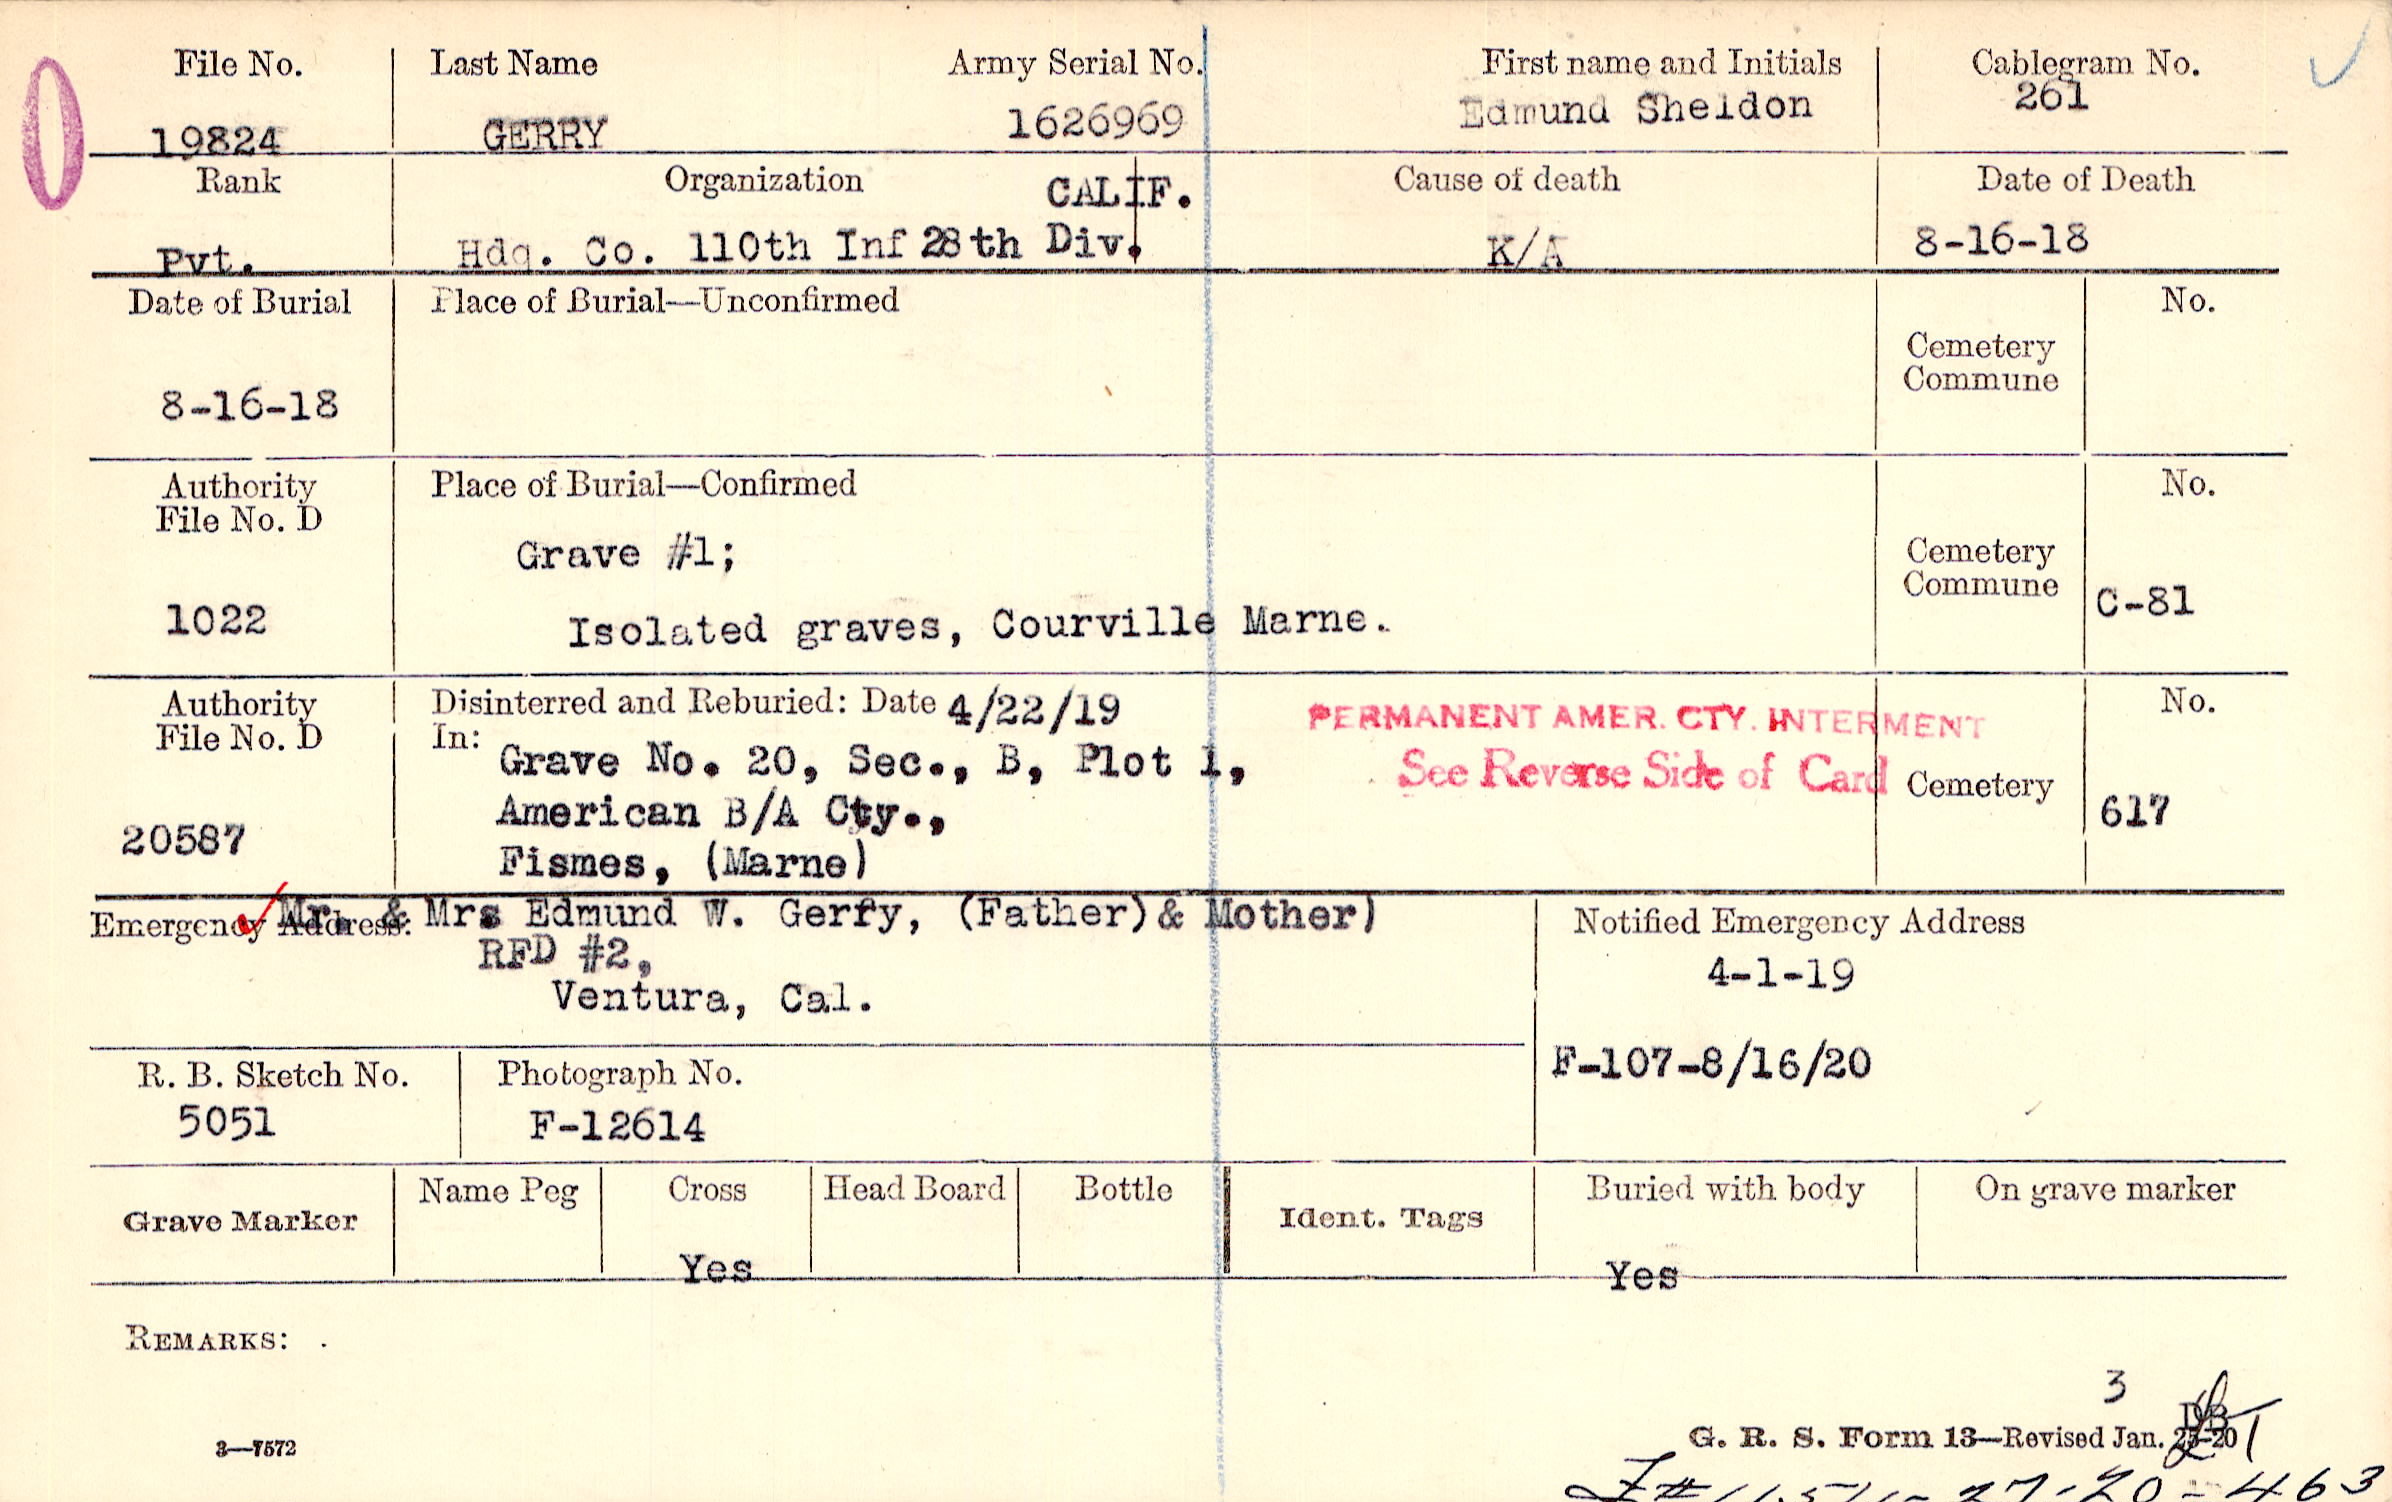 File No. Last Name Army Serial No. First name and Initials Cablegram No.
19824 GERRY 1626969 Edmund Sheldon 261
Rank Organization CALIF. Cause of death Date of Death
Pvt. Hdq. Co. 110th Inf 28th Div. K/A 8-16-18
Date of Burial Place of Burial—Unconfirmed No.
Cemetery
Commune
8-16-18
Authority Place of Burial—Confirmed No.
File No. D
Grave #1; Cemetery
Commune C-81
1022 Isolated graves, Courville Marne.
Authority Disinterred and Reburied: Date 4/22/19 PERMANENT AMER. CTY. INTERMENT No.
File No. D In:
Grave No. 20, Sec., B, Plot 1, See Reverse Side of Card Cemetery
American B/A Cty., 617
20587
Fismes, (Marne)
Emergency Address: Mr. & Mrs Edmund W. Gerry, (Father) & Mother) Notified Emergency Address
RFD #2, 4-1-19
Ventura, Cal.
F-107-8/16/20
R. B. Sketch No. Photograph No.
5051 F-12614
Grave Marker Name Peg Cross Head Board Bottle Ident. Tags Buried with body On grave marker
Yes Yes
REMARKS: .
3
3—7572 G. R. S. Form 13—Revised Jan. 25-20